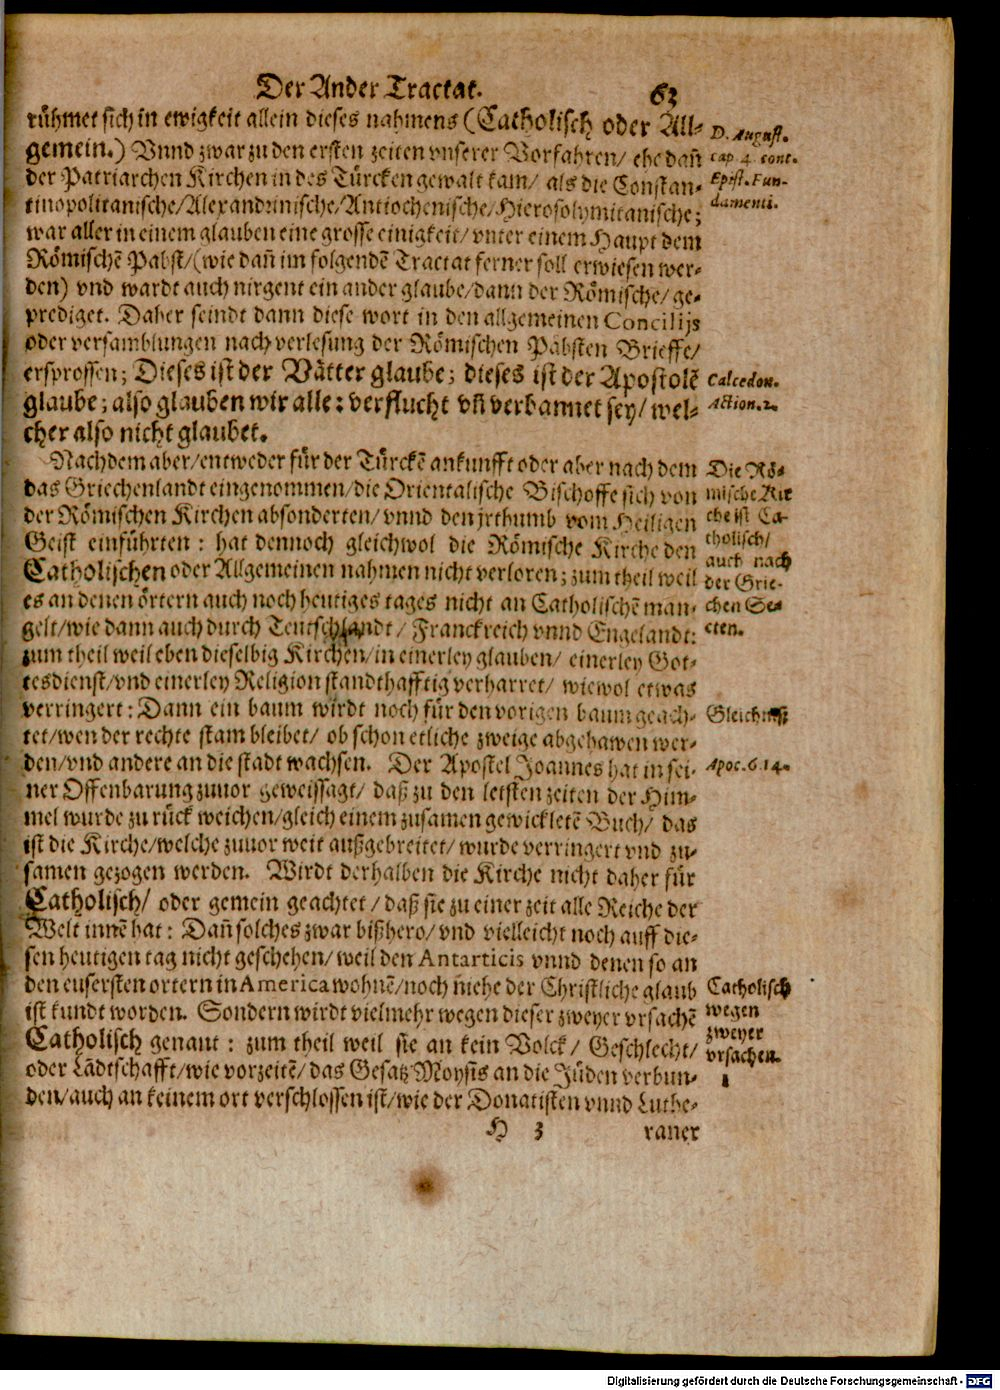 Der Ander Tractat. 63
rühmet sich in ewigkeit allein dieses nahmens (Catholisch oder All-
gemein.) Vnnd zwar zu den ersten zeiten vnserer Vorfahren/ ehe dañ
der Patriarchen Kirchen in des Türcken gewalt kam/ als die Constan-
tinopolitanische/Alexandrinische/Antiochenische/Hierosolymitanische;
war aller in einem glauben eine grosse einigkeit/ vnter einem Haupt dem
Römischē Pabst/(wie dañ im folgendē Tractat ferner soll erwiesen wer-
den) vnd wardt auch nirgent ein ander glaube/dann der Römische/ ge-
prediget. Daher seindt dann diese wort in den allgemeinen Concilijs
oder versamblungen nach verlesung der Römischen Päbsten Brieffe/
ersprossen; Dieses ist der Vätter glaube; dieses ist der Apostolē
glaube; also glauben wir alle: verflucht vñ verbannet sey/ wel-
cher also nicht glaubet.
D. August.
cap. 4. cont.
Epist. Fun-
damenti.
Calcedon.
Action. 2.
Nachdem aber/entweder für der Türckē ankunfft oder aber nach dem
das Griechenlandt eingenommen/die Orientalische Bischoffe sich von
der Römischen Kirchen absonderten/ vnnd den jrthumb vom Heiligen
Geist einführten: hat dennoch gleichwol die Römische Kirche den
Catholischen oder Allgemeinen nahmen nicht verloren; zum theil weil
es an denen örtern auch noch heutiges tages nicht an Catholischē man-
gelt/wie dann auch durch Teutschlandt/ Franckreich vnnd Engelandt:
zum theil weil eben dieselbig Kirchen/in einerley glauben/ einerley Got-
tesdienst/vnd einerley Religion standthafftig verharret/ wiewol etwas
verringert: Dann ein baum wirdt noch für den vorigen baum geach-
tet/wen der rechte stam bleibet/ ob schon etliche zweige abgehawen wer-
den/vnd andere an die stadt wachsen. Der Apostel Joannes hat in sei-
ner Offenbarung zuuor geweissagt/ daß zu den letsten zeiten der Him-
mel wurde zu rück weichen/gleich einem zusamen gewickletē Buch/ das
ist die Kirche/welche zuuor weit außgebreitet/ wurde verringert vnd zu-
samen gezogen werden. Wirdt derhalben die Kirche nicht daher für
Catholisch/ oder gemein geachtet/ daß sie zu einer zeit alle Reiche der
Welt innē hat: Dañ solches zwar bißhero/ vnd vielleicht noch auff die-
sen heutigen tag nicht geschehen/ weil den Antarticis vnnd denen so an
den eusersten ortern in America wohnē/noch niehe der Christliche glaub
ist kundt worden. Sondern wirdt vielmehr wegen dieser zweyer vrsachē
Catholisch genant: zum theil weil sie an kein Volck/ Geschlecht/
oder Lādtschafft/wie vorzeitē/das Gesatz Moysis an die Jüden verbun-
den/auch an keinem ort verschlossen ist/wie der Donatisten vnnd Luthe-
Die Rö-
mische Kir
che ist Ca-
tholisch/
auch nach
der Grie-
chen Se-
cten.
Gleichnuß
Apoc. 6. 14.
Catholisch
wegen
zweyer
vrsachen.
1
H 3 raner
Digitalisierung gefördert durch die Deutsche Forschungsgemeinschaft - DFG